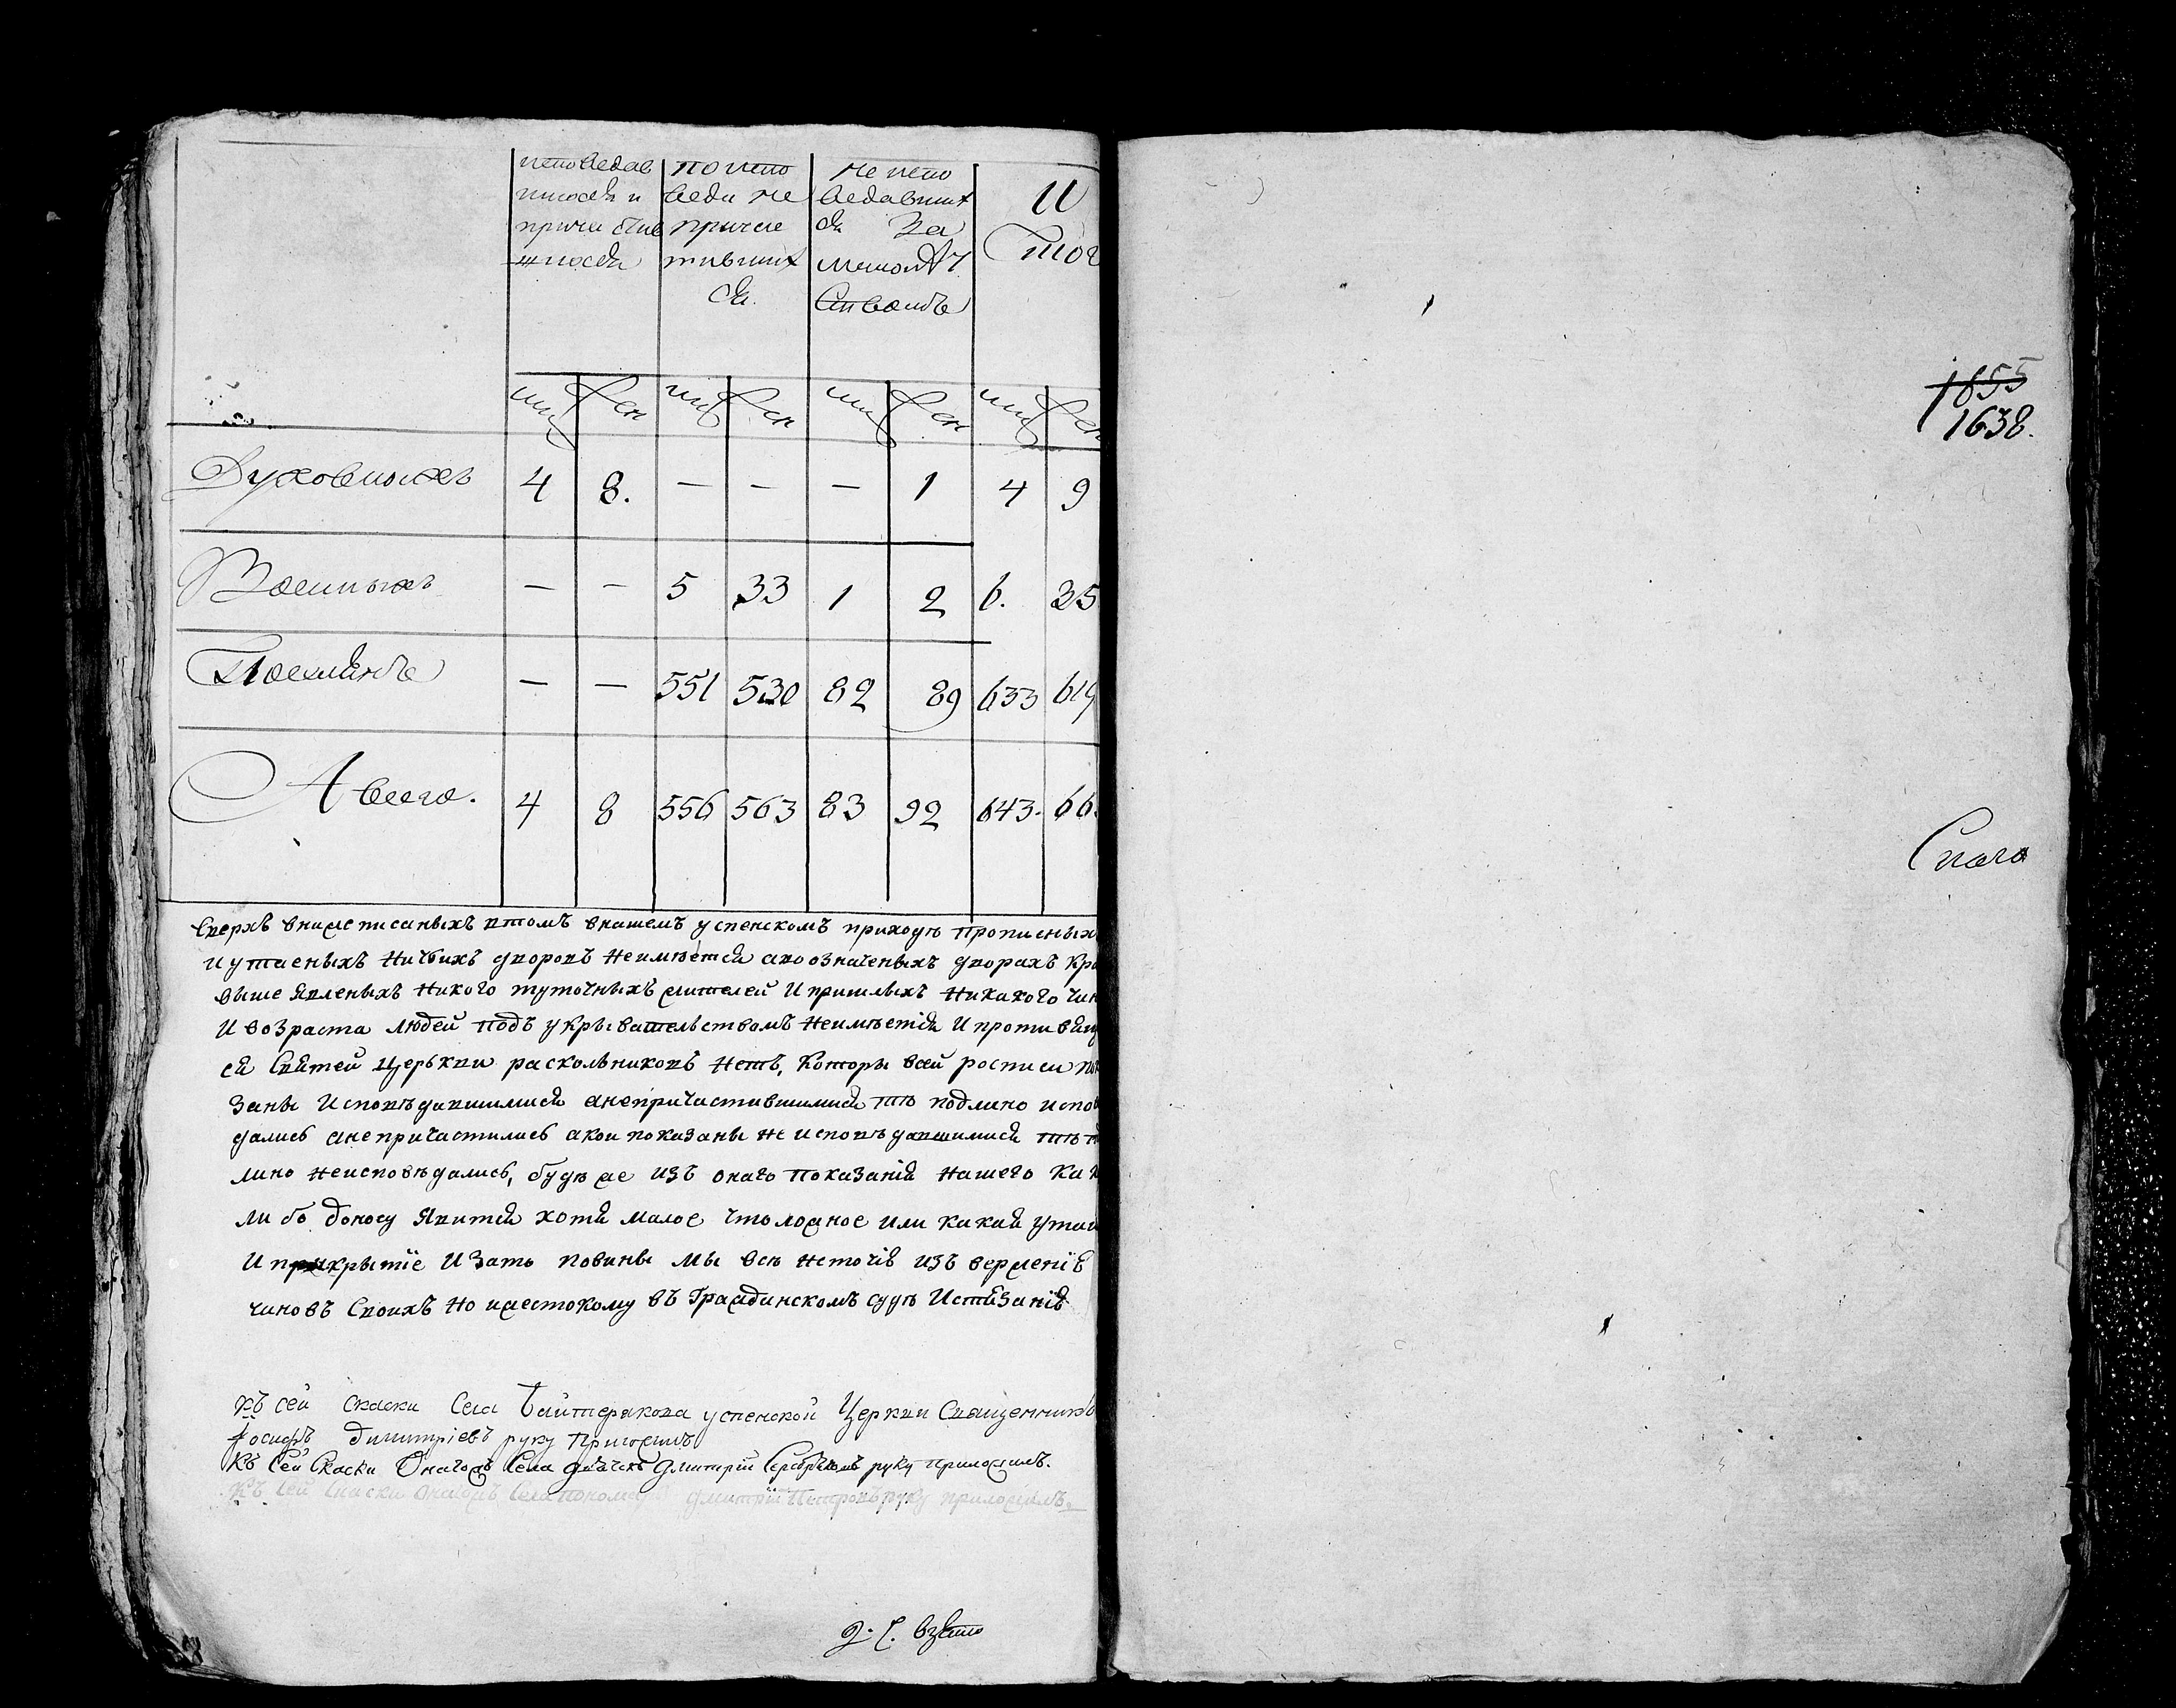 исповедав по испо не испо И
шихся и веди не ведавших тог
причастив причас ся за
шихся тивших
ся
муж жен муж жен муж жен муж жен
Духовныхъ 4 8. — — — 1 4 9
Военныхъ — — 5 33 1 2 6. 35
Поселянъ — — 551 530 82 89 633 619
А всего. 4 8 556 563 83 92 643. 66
Сверхъ вниже писаныхъ втомъ внашемъ успенскомъ приходѣ прописныхъ
и утаеныхъ ничьихъ дворовъ неимѣется авоозначеныхъ дворахъ кро
выше явленыхъ никого туточныхъ жителей и пришлыхъ никакого чин
и возраста людей подъ укрывательствомъ неимѣется и противящ
ся святей церькви раскольниковъ нетъ, которы всей росписи пок
заны исповѣдавшимися анепричастившимися тѣ подлино испов
дались анепричастились акои показаны не исповѣдавшимися тѣ
лино неисповѣдались, будѣ же изъ онаго показанія нашего ка
либо доносу явится хотя малое что ложное или какая утаи
и прикрытіе и зато повины мы всѣ
чиновъ своихъ но и жестокому въ гражданскомъ судѣ истязанію
къ сей скаски села Байтерякова успенской церкви священникъ
Іосифъ Димитріевъ руку приложилъ
къ сей скаски онагожъ села дьячекъ Дмитрій руку приложилъ.
къ сей скаски онагожъ села пономарь Дмитрій Петровъ руку приложилъ.
взято
1855
1638.